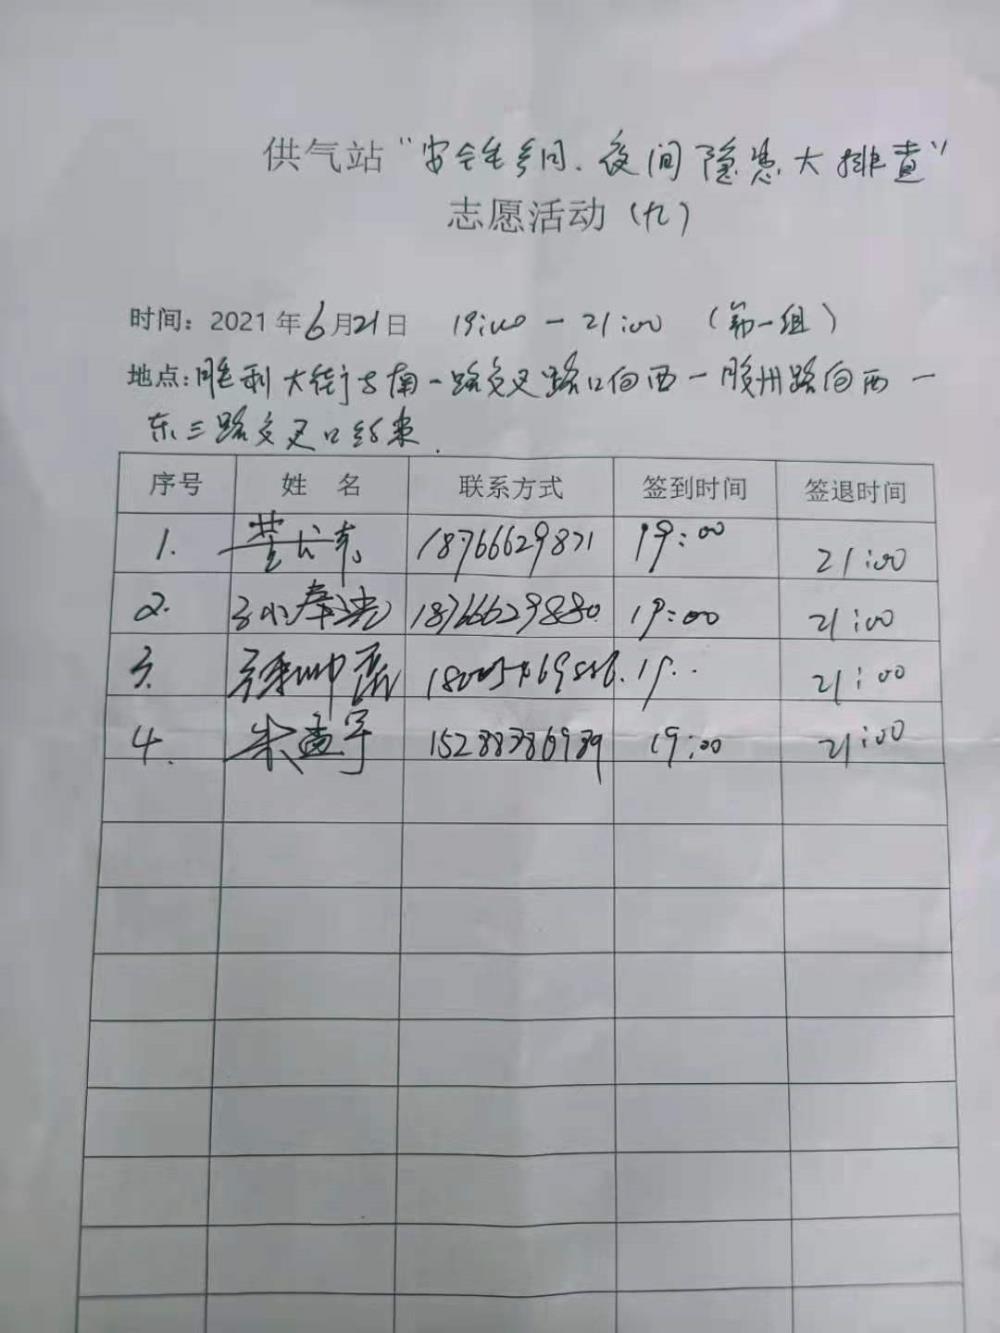 供气站“安全乡间、夜间隐患大排查”
志愿活动(九)
时间：2021年6月21日 19:00-21:00 (第一组)
地点：胜利大街与南一路交叉路口向西-胶州路向西-
东三路交叉口结束.
序号 姓 名 联系方式 签到时间 签退时间
1. 18766629871 19:00 21:00
2. 18766629880 19:00 21:00
3. 19: 21:00
4. 朱孟宇 15288786939 19:00 21:00